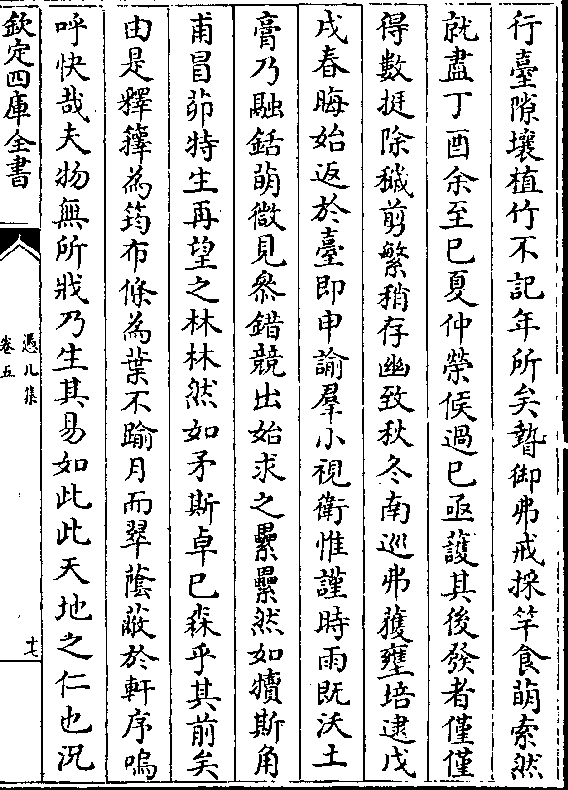 行臺隙壤植竹不記年所矣暬御弗戒採竿食萌索然
就盡丁酉余至已夏仲榮候過已亟䕶其後發者僅僅
得數挺除穢剪繁稍存幽致秋冬南巡弗獲壅培逮戊
戌春晦始返於臺即申諭羣小視衛惟謹時雨既沃土
膏乃融銛萌微見叅錯競出始求之纍纍然如犢斯角
甫冒茆特生再望之林林然如矛斯卓已森乎其前矣
由是釋籜為筠布條為葉不踰月而翠蔭蔽於軒序嗚
呼快哉夫物無所戕乃生其易如此此天地之仁也況
欽定四庫全書
憑几集
卷五
十七